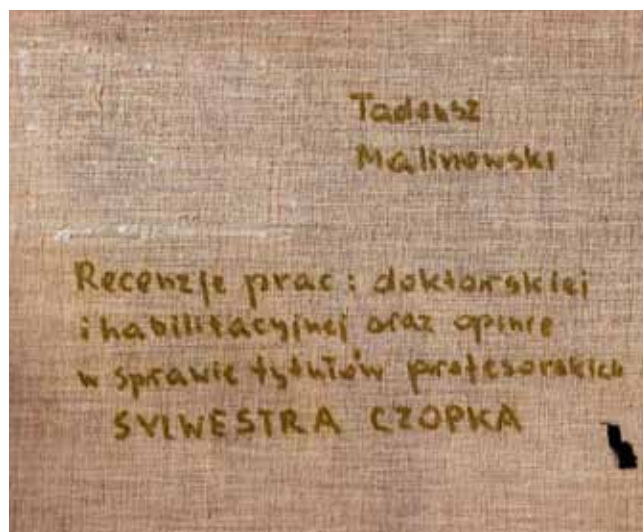 Tadeusz
Malinowski
Recenzje prac: doktorskiej
i habilitacyjnej oraz opinie
w sprawie tytułów profesorskich
SYLWESTRA CZOPKA